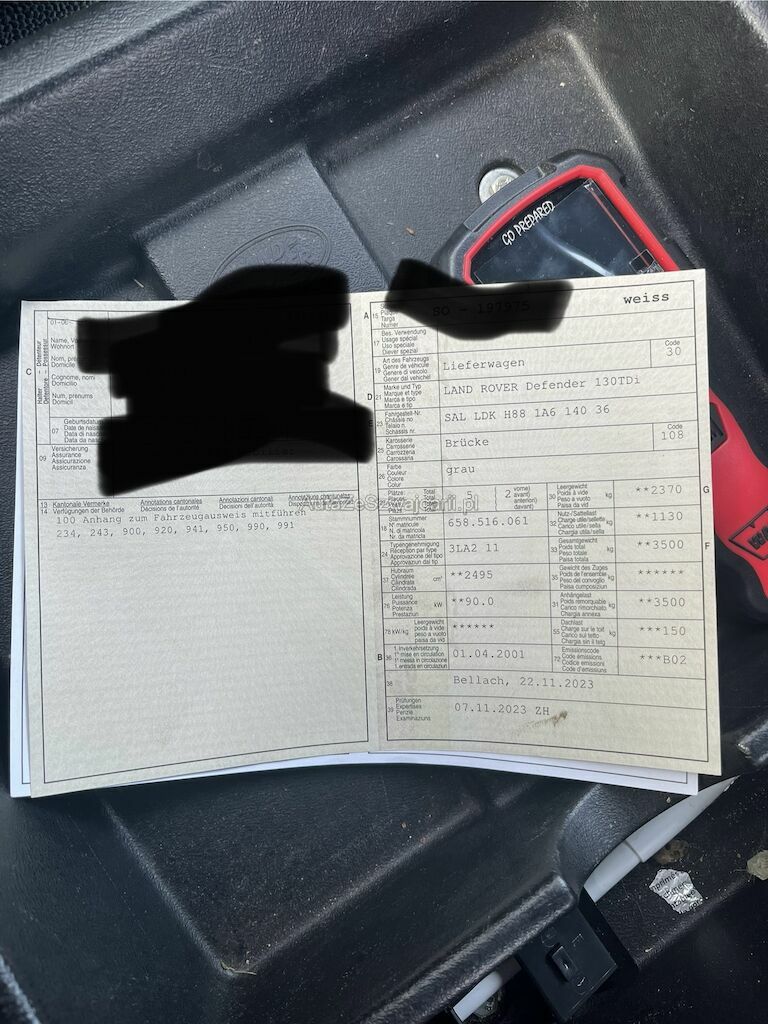 GO PREPARED
weiss
C
A
15
Targa
01-06
Halter Détenteur
Detentore Possessur
Name, Vo
Wohnort
Nom, pré
Domicile
Cognome, nomi
Domicilio
Num, prenums
Domicil
07
Geburtsdatum
Date de nais
Data di nasc
Data da nasc
09
Versicherung
Assurance
Assicurazione
Assicuranza
17
Bes. Verwendung
Usage spécial
Uso speciale
Diever spezial
19
Art des Fahrzeugs
Genre de véhicule
Genere di veicolo
Gener dal vehichel
Lieferwagen
Code
30
D
21
Marke und Typ
Marque et type
Marca e tipo
Marca e tip
LAND ROVER Defender 130TDi
E
23
Fahrgestell-Nr.
Châssis no
Telaio n.
Schassis nr.
SAL LDK H88 1A6 140 36
25
Karosserie
Carrosserie
Carrozzeria
Carossaria
Brücke
Code
108
26
Farbe
Couleur
Colore
Colur
grau
13
14
Kantonale Vermerke
Verfügungen der Behörden
Annotations cantonales
Décisions de l'autorité
Annotazioni cantonali
Decisioni dell'autorità
Annotaziuns chantunalas
100 Anhang zum Fahrzeugausweis mitführen
234, 243, 900, 920, 941, 950, 990, 991
27
Plätze: Total
Places: Total
5
( 2 vorne)
avant)
anteriori)
davant)
30
Leergewicht
Poids à vide
Peso a vuoto
Paisa da vid
kg
**2370
G
18
Stammnummer
No matricule
N. di matricola
Nr. da matricla
658.516.061
32
Nutz-/Sattellast
Charge utile/sellette
Carico utile/sella
Chargia utila/sella
kg
**1130
24
Typengenehmigung
Réception par type
Approvazione del tipo
Approvaziun dal tip
3LA2 11
33
Gesamtgewicht
Poids total
Peso totale
Paisa totala
kg
**3500
F
37
Hubraum
Cylindrée
Cilindrata
Cilindrada
cm³
**2495
35
Gewicht des Zuges
Poids de l'ensemble
Peso del convoglio
Paisa cumposiziun
kg
******
76
Leistung
Puissance
Potenza
Prestaziun
kW
**90.0
31
Anhängelast
Poids remorquable
Carico rimorchiato
Chargia annexa
kg
**3500
78
kW/kg
Leergewicht
poids à vide
peso a vuoto
paisa da vid
******
55
Dachlast
Charge sur le toit
Carico sul tetto
Chargia sin il tetg
kg
***150
B
36
1. Inverkehrsetzung
1re mise en circulation
1a messa in circolazione
1. entrada en circulaziun
01.04.2001
72
Emissionscode
Code émissions
Codice emissioni
Code d'emissiuns
***B02
38
Bellach, 22.11.2023
39
Prüfungen
Expertises
Perizie
Examinaziuns
07.11.2023 ZH